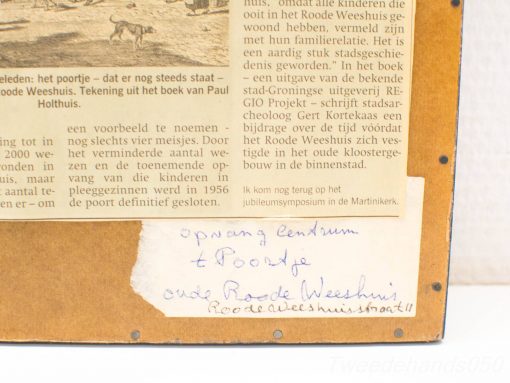 eleden: het poortje – dat er nog steeds staat –
Roode Weeshuis. Tekening uit het boek van Paul
Holthuis.
ning tot in
2000 we-
ronden in
huis, maar
aantal te-
en er – om
een voorbeeld te noemen -
nog slechts vier meisjes. Door
het verminderde aantal we-
zen en de toenemende op-
vang van die kinderen in
pleeggezinnen werd in 1956
de poort definitief gesloten.
huis, "omdat alle kinderen die
ooit in het Roode Weeshuis ge-
woond hebben, vermeld zijn
met hun familierelatie. Het is
een aardig stuk stadsgeschie-
denis geworden." In het boek
– een uitgave van de bekende
stad-Groningse uitgeverij RE-
GIO Projekt – schrijft stadsar-
cheoloog Gert Kortekaas een
bijdrage over de tijd vóórdat
het Roode Weeshuis zich ves-
tigde in het oude klooster-
gebouw in de binnenstad.
Ik kom nog terug op het
jubileumsymposium in de Martinikerk.
opvang centrum
t Poortje
oude Roode Weeshuis
Roode Weeshuisstraat 11
Tweedehands050